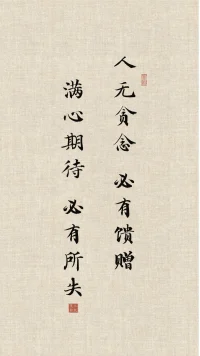 人无贪念 必有馈赠
满心期待 必有所失